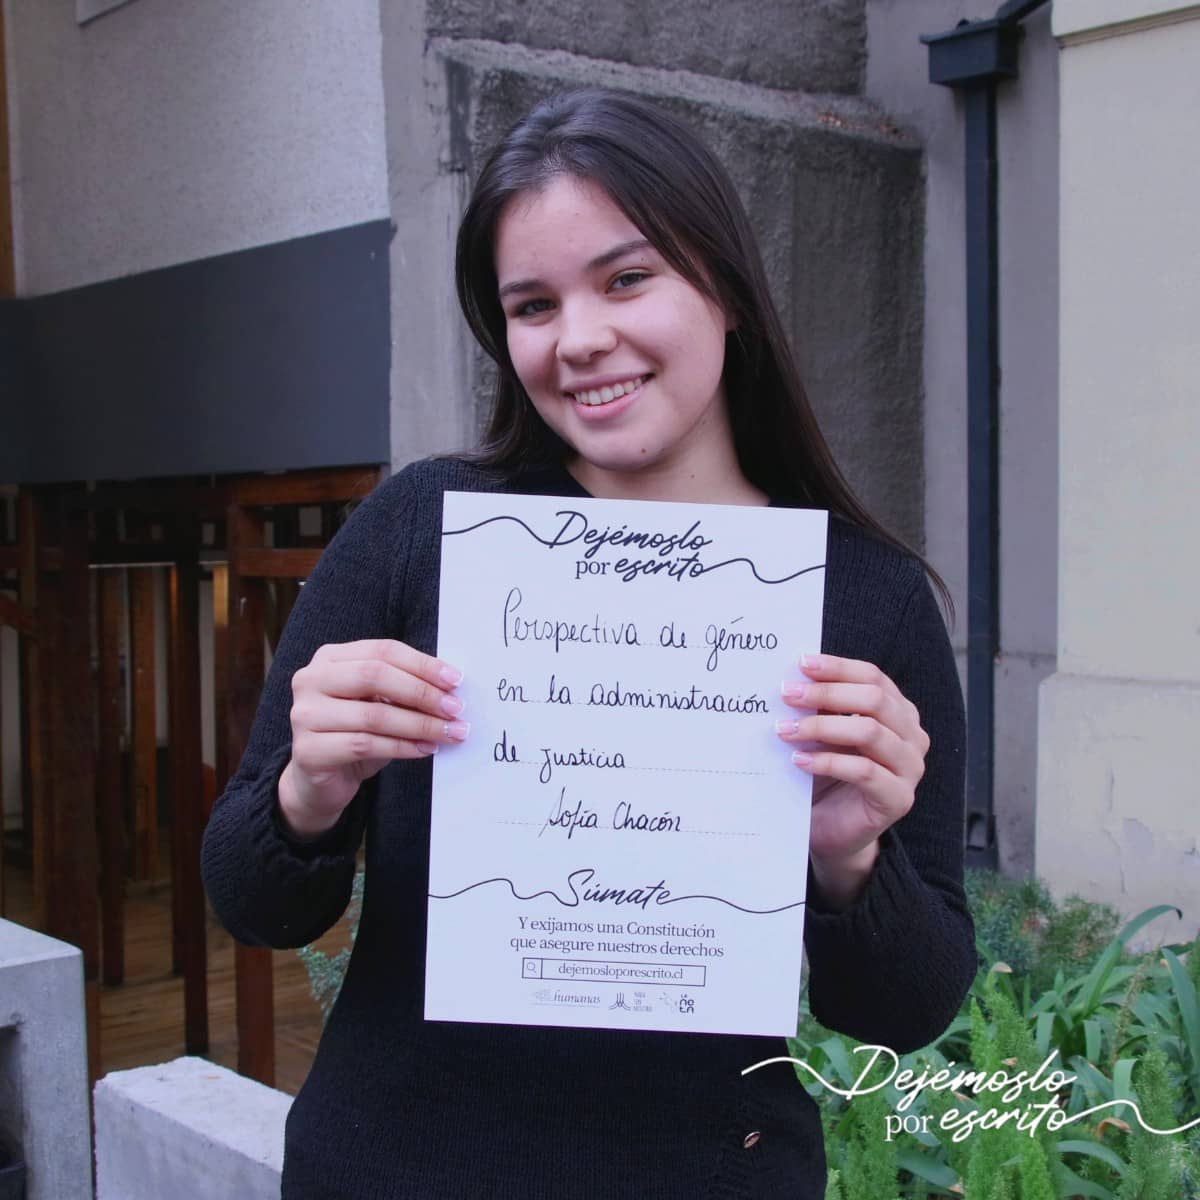 Dejémoslo
por escrito
Perspectiva de género
en la administración
de justicia
Sofía Chacón
Súmate
Y exijamos una Constitución
que asegure nuestros derechos
dejemosloporescrito.cl
humanas
LA
neta
Dejémoslo
por escrito